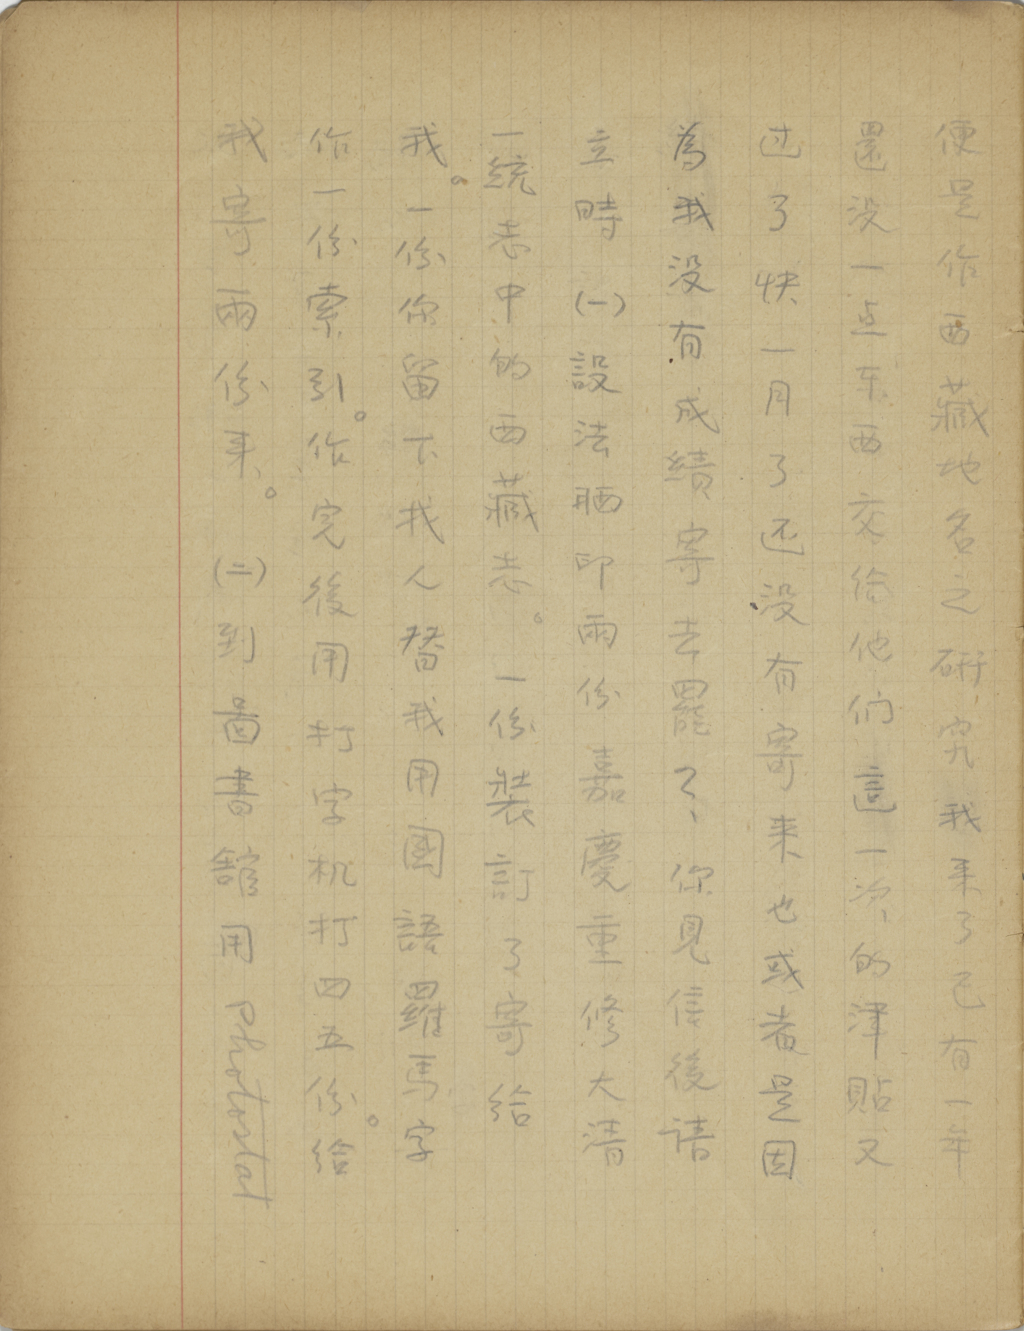 便是作西藏地名之研究我来了已有一年
還没一点东西交给他们這一次的津貼又
过了快一月了还没有寄来也或者是因
為我没有成績寄去罷了、你見信後請
立時(一)設法晒印兩份嘉慶重修大清
一統志中的西藏志。一份裝訂了寄給
我。一份你留下找人替我用國語羅馬字
作一份索引。作完後用打字机打四五份給
我寄兩份来。(二)到圖書館用Photostat